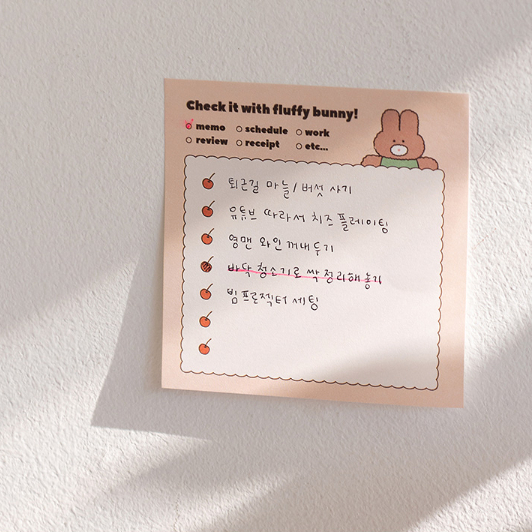 Check it with fluffy bunny!
memo schedule work
review receipt etc...
퇴근길 마늘/버섯 사기
유튜브 따라서 치즈 플레이팅
영맨 와인 꺼내두기
바닥 청소기로 싹 정리해놓기
빔프로젝터 세팅